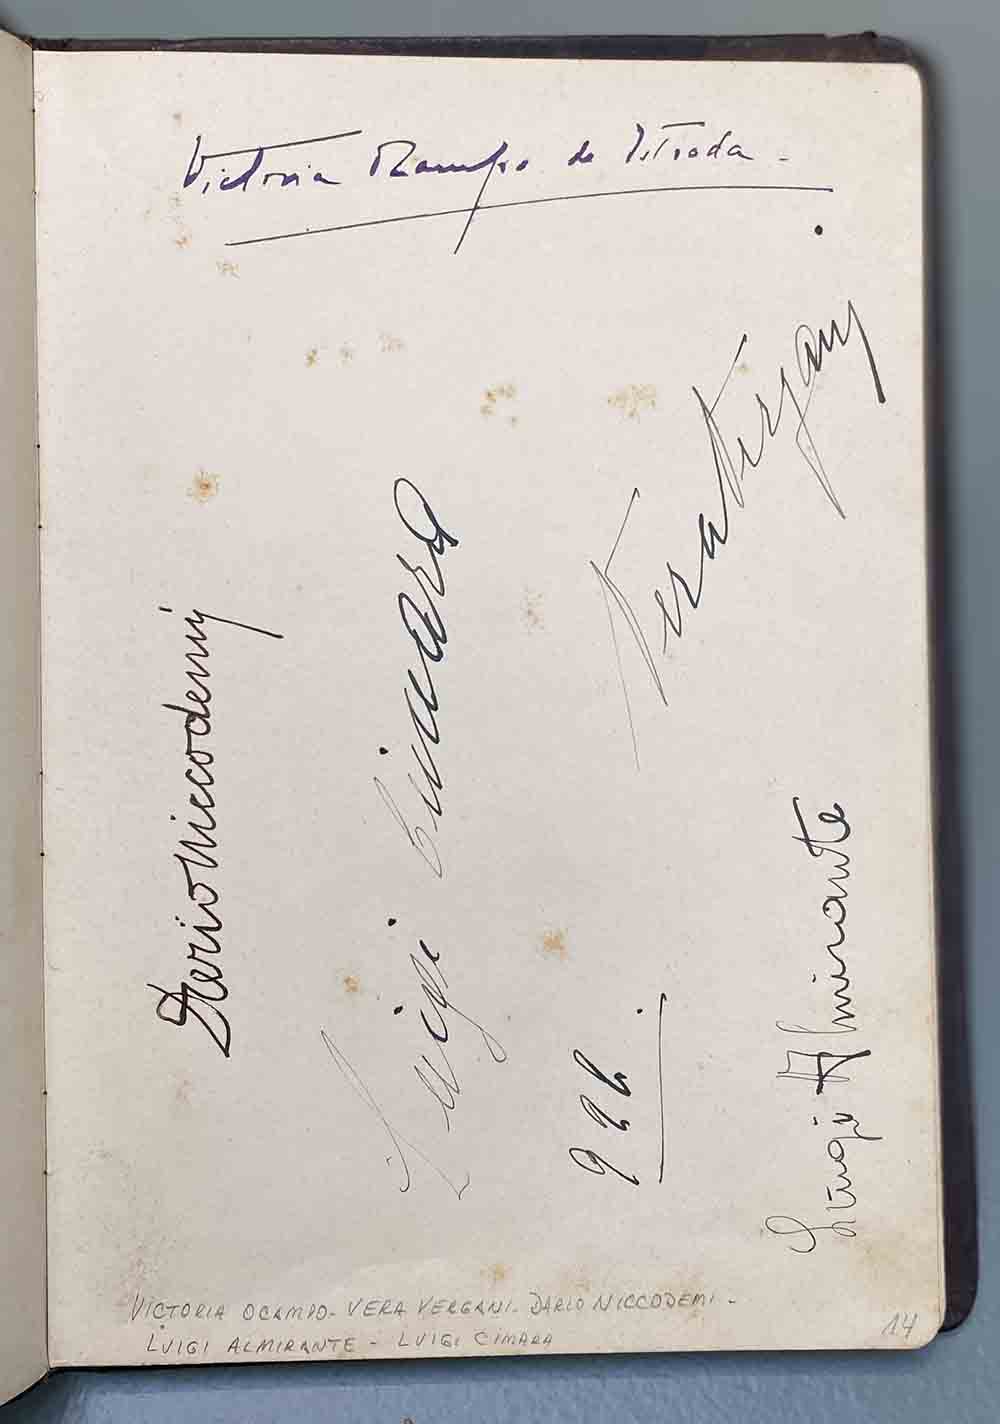 Victoria Ocampo de Estrada -
Vera Vergani
Dario Niccodemi
Luigi Cimara
924
Luigi Almirante
VICTORIA OCAMPO - VERA VERGANI - DARIO NICCODEMI -
LUIGI ALMIRANTE - LUIGI CIMARA
14